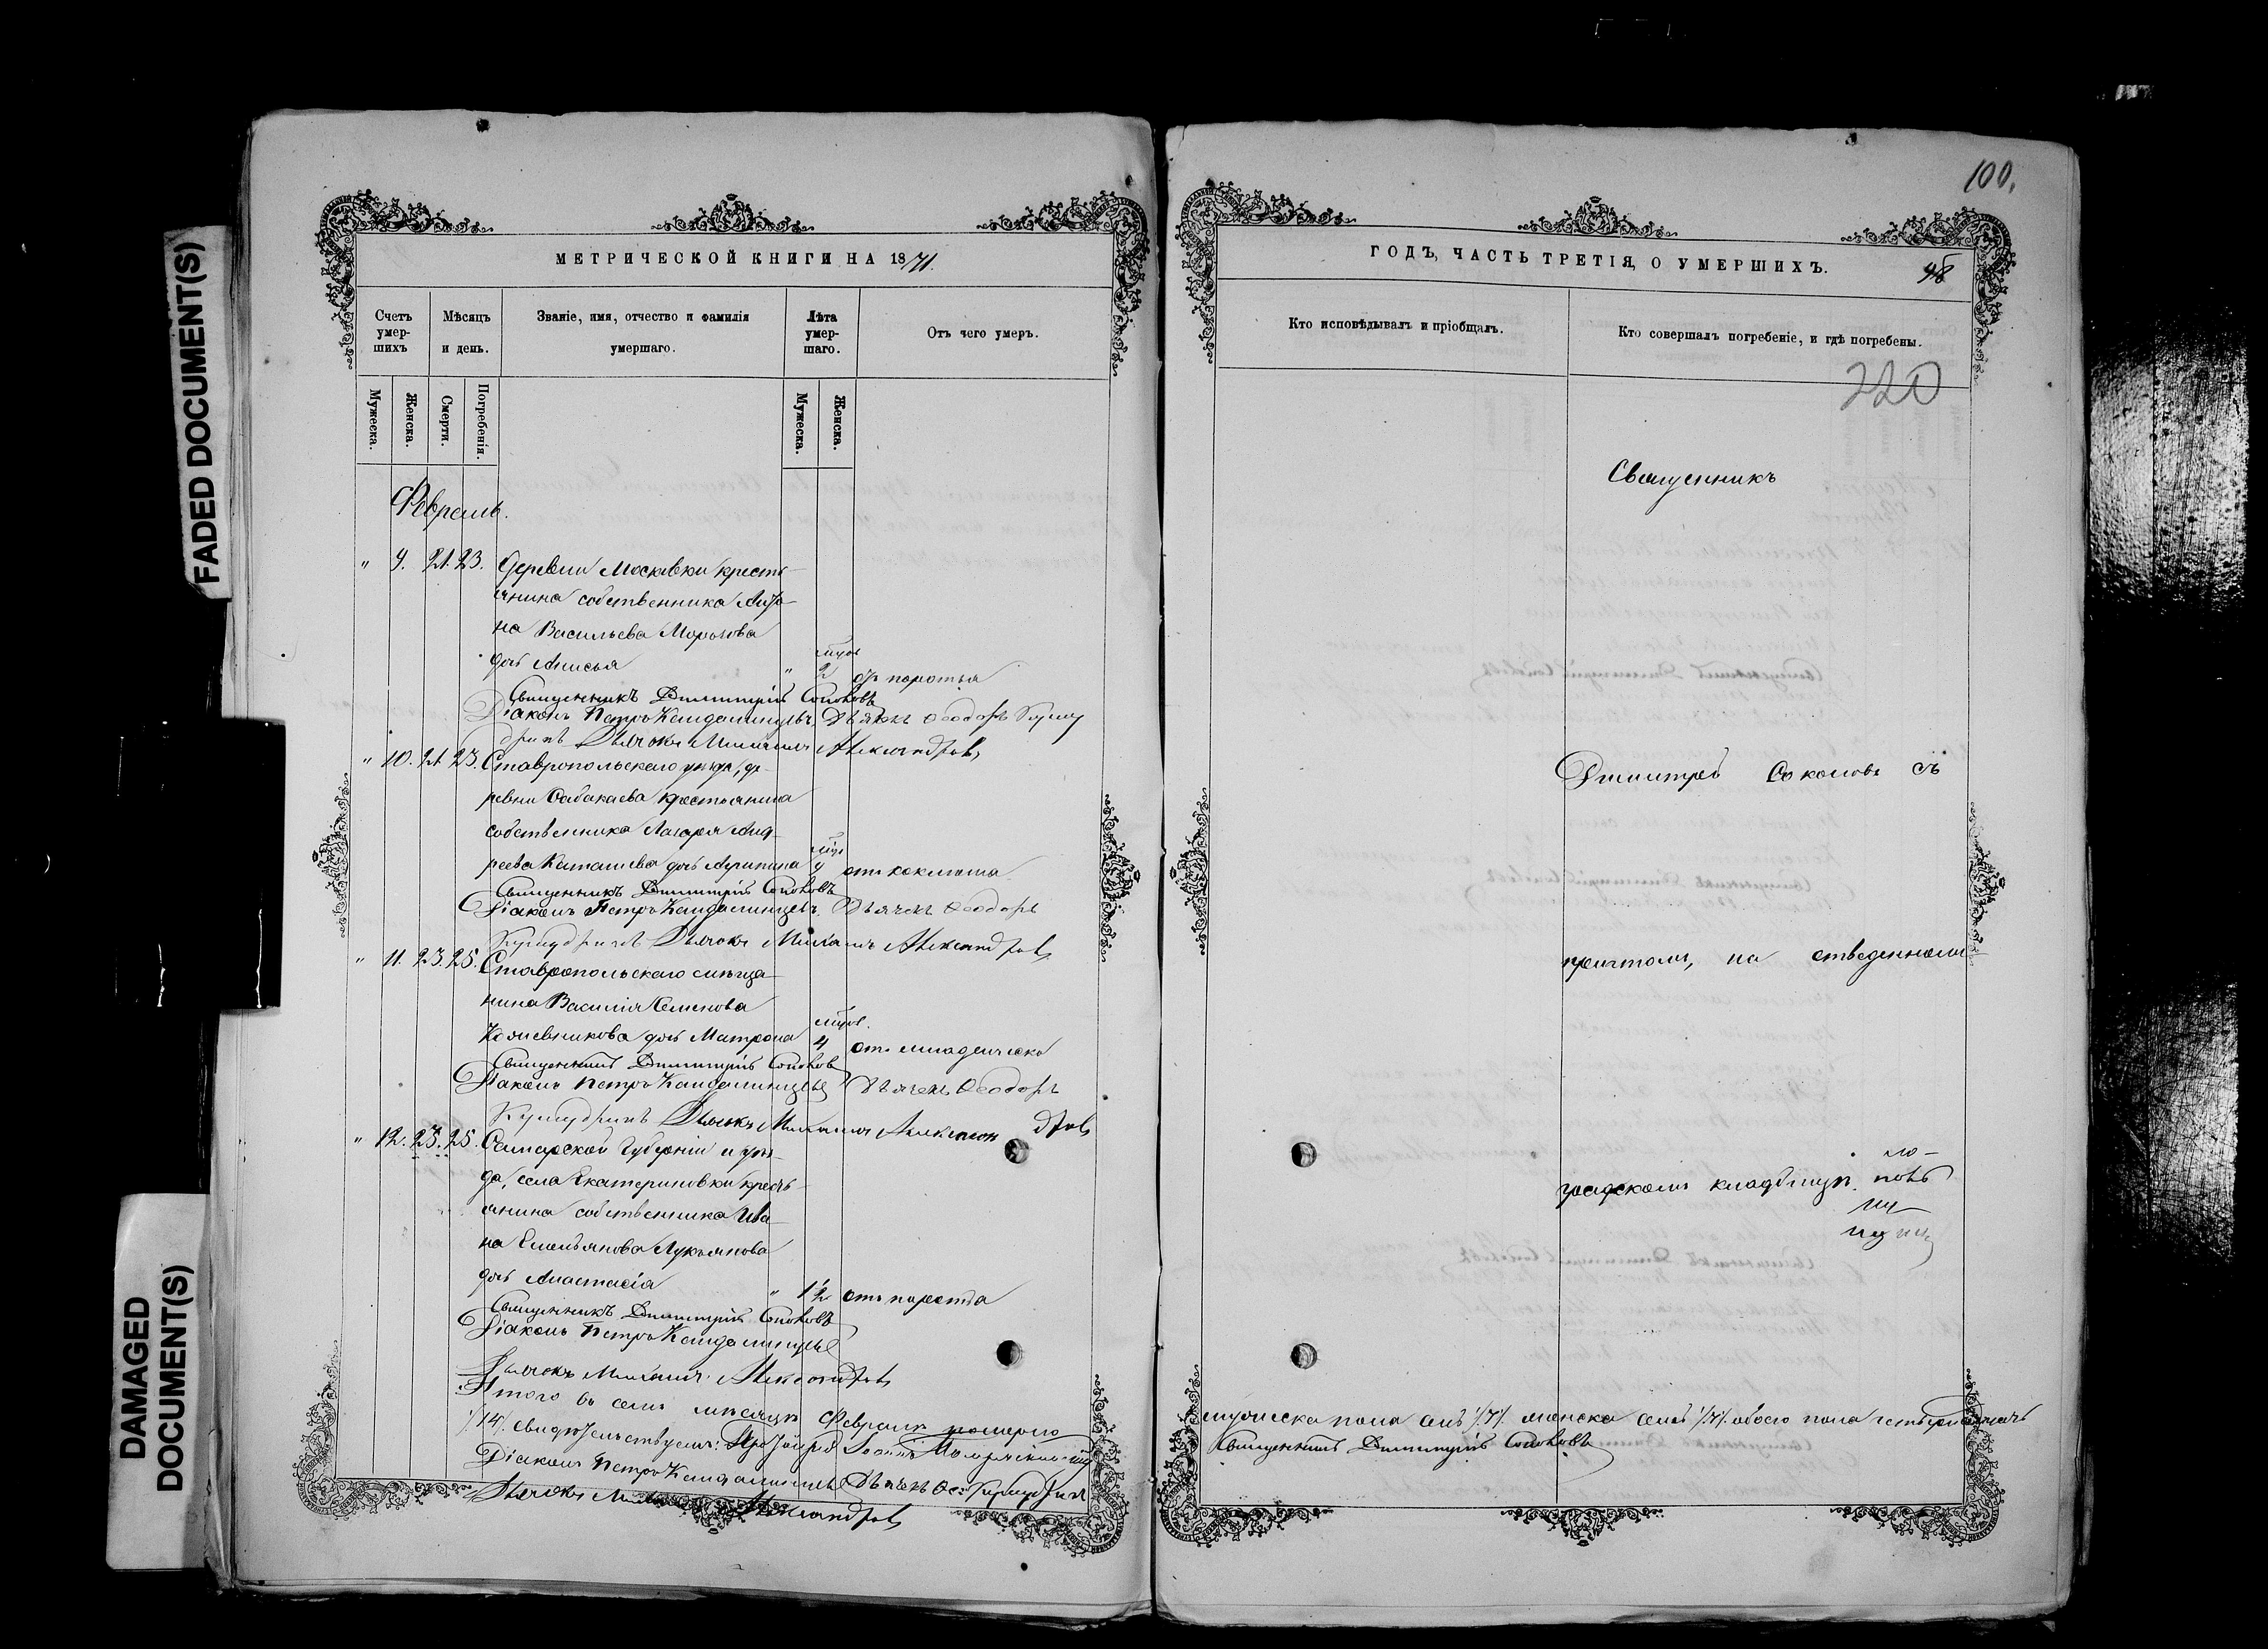 FADED DOCUMENT(S)
DAMAGED
DOCUMENT(S)
МЕТРИЧЕСКОЙ КНИГИ НА 1871.
Счетъ умер-шихъ
Мѣсяцъ и день.
Званіе, имя, отчество и фамилія умершаго.
Лѣта умер-шаго.
Отъ чего умеръ.
Мужеска.
Женска.
Смерти.
Погребенія.
Мужеска.
Женска.
Февраль.
" 9. 21. 23. Деревни Москвки кресть-
янина собственника
на Васильева Морозова
дочь Анисья " мцов 2 отъ поноса
Священникъ Димитрій Соколовъ
Діаконъ Петръ Дьячекъ Ѳеодоръ
Дьячокъ Михаилъ Александровъ
" 10. 21. 23. Ставропольскаго уѣзда, де-
ревни Сабакаева крестьянина
собственника Лазаря Анд-
реева дочь мцов 9 отъ коклюша
Священникъ Димитрій Соколовъ
Діаконъ Петръ Дьячекъ Ѳеодоръ
Дьячокъ Михаилъ Александровъ
" 11. 23. 25. Ставропольскаго мѣща-
нина Василія Семенова
Кожевникова дочь Матрона мцов. 4 отъ младенческо
Священникъ Димитрій Соколовъ
Діаконъ Петръ Дьячекъ Ѳеодоръ
Дьячокъ Михаилъ Александровъ
" 12. 23. 25. Самарской Губерніи и уѣз-
да, села Екатериновки кресть-
янина собственника Ива-
на Емельянова Лукьянова
дочь Анастасія " 1½ отъ поноса
Священникъ Димитрій Соколовъ
Діаконъ Петръ
Дьячокъ Михаилъ Александровъ
Итого въ семъ мѣсяцѣ Февралѣ померло
/14/. Свидѣтельствуемъ: Протоіерей Іоаннъ
Діаконъ Петръ Дьячекъ Ѳео:
Дьячокъ Александровъ
100.
ГОДЪ, ЧАСТЬ ТРЕТІЯ, О УМЕРШИХЪ.
98
Кто исповѣдывалъ и пріобщалъ.
Кто совершалъ погребеніе, и гдѣ погребены.
220
Священникъ
Димитрій Соколовъ съ
причтомъ, на отведенномъ
градскомъ кладбищѣ.
мужеска пола семь /7/. женска семь /7/. обоего пола четырнадцать
Священникъ Димитрій Соколовъ